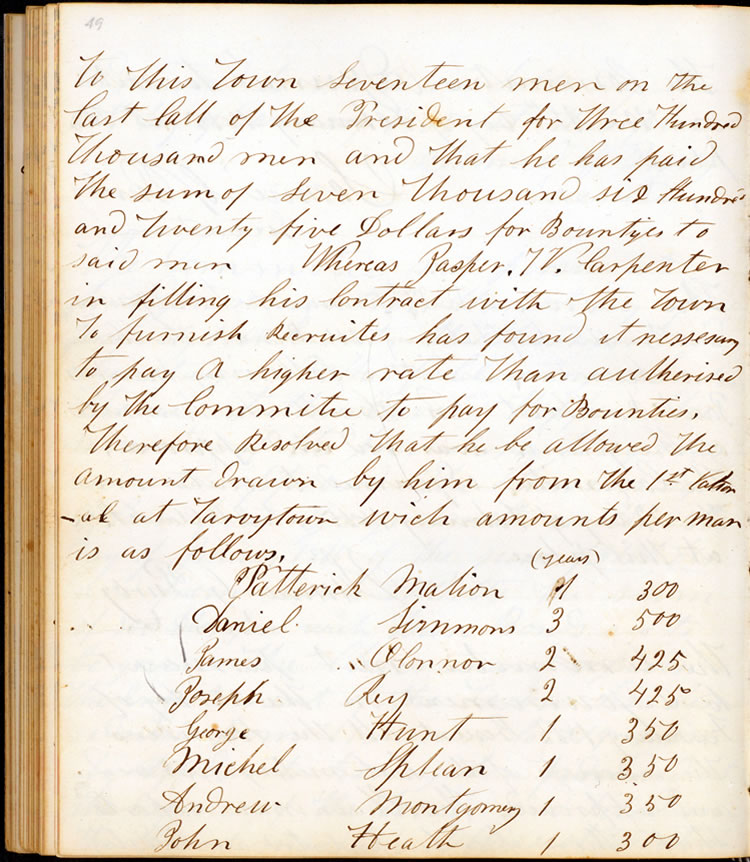 49
To This Town Seventeen men on the
last Call of the President for three Hundred
Thousand men and that he has paid
The sum of Seven Thousand six Hundred
and Twenty five Dollars for Bountyes to
said men Whereas Jasper. W. Carpenter
in filling his Contract with the Town
To furnish Recruites has found it nessesary
to pay A higher rate Than autherised
by the Committie to pay for Bounties.
Therefore Resolved that he be allowed the
amount drawn by him from the 1st Nation
-al at Tarrytown wich amounts per man
is as follows.
(years)
Patterick 1 300
Daniel Simmons 3 500
James O'Connor 2 425
Joseph Rey 2 425
George Hunt 1 350
Michel 1 350
Andrew Montgomery 1 350
John Heath 1 300